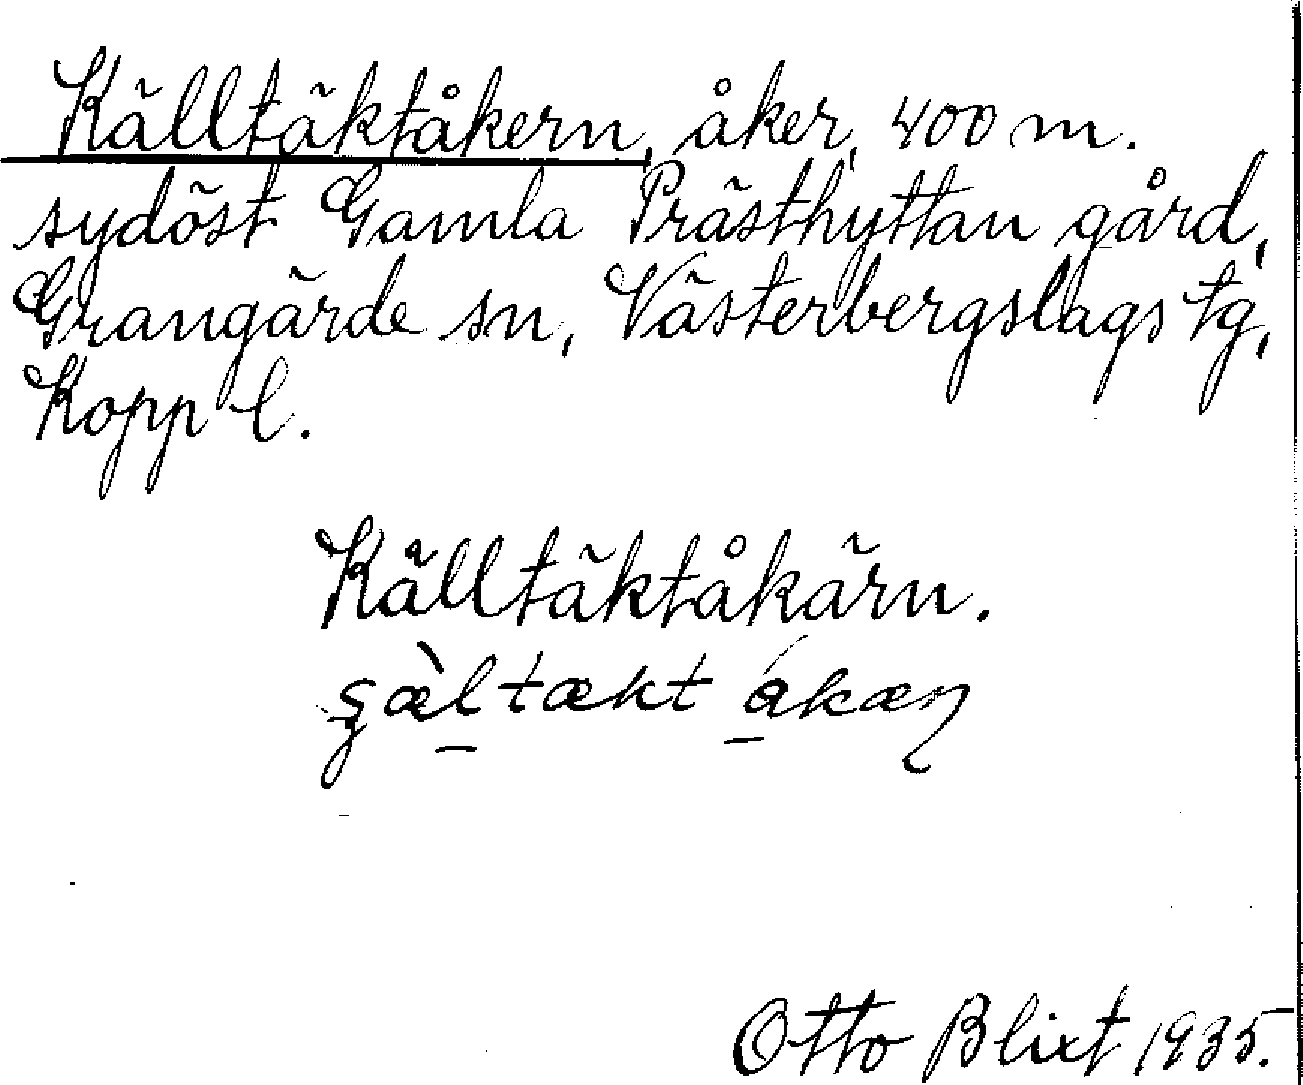 Källtäktåkern, åker, 400 m.
sydöst Gamla Prästhyttan gård,
Grangärde sn, Västerbergslags tg,
Kopp l.
Källtäktåkärn.
Otto Blixt 1935.